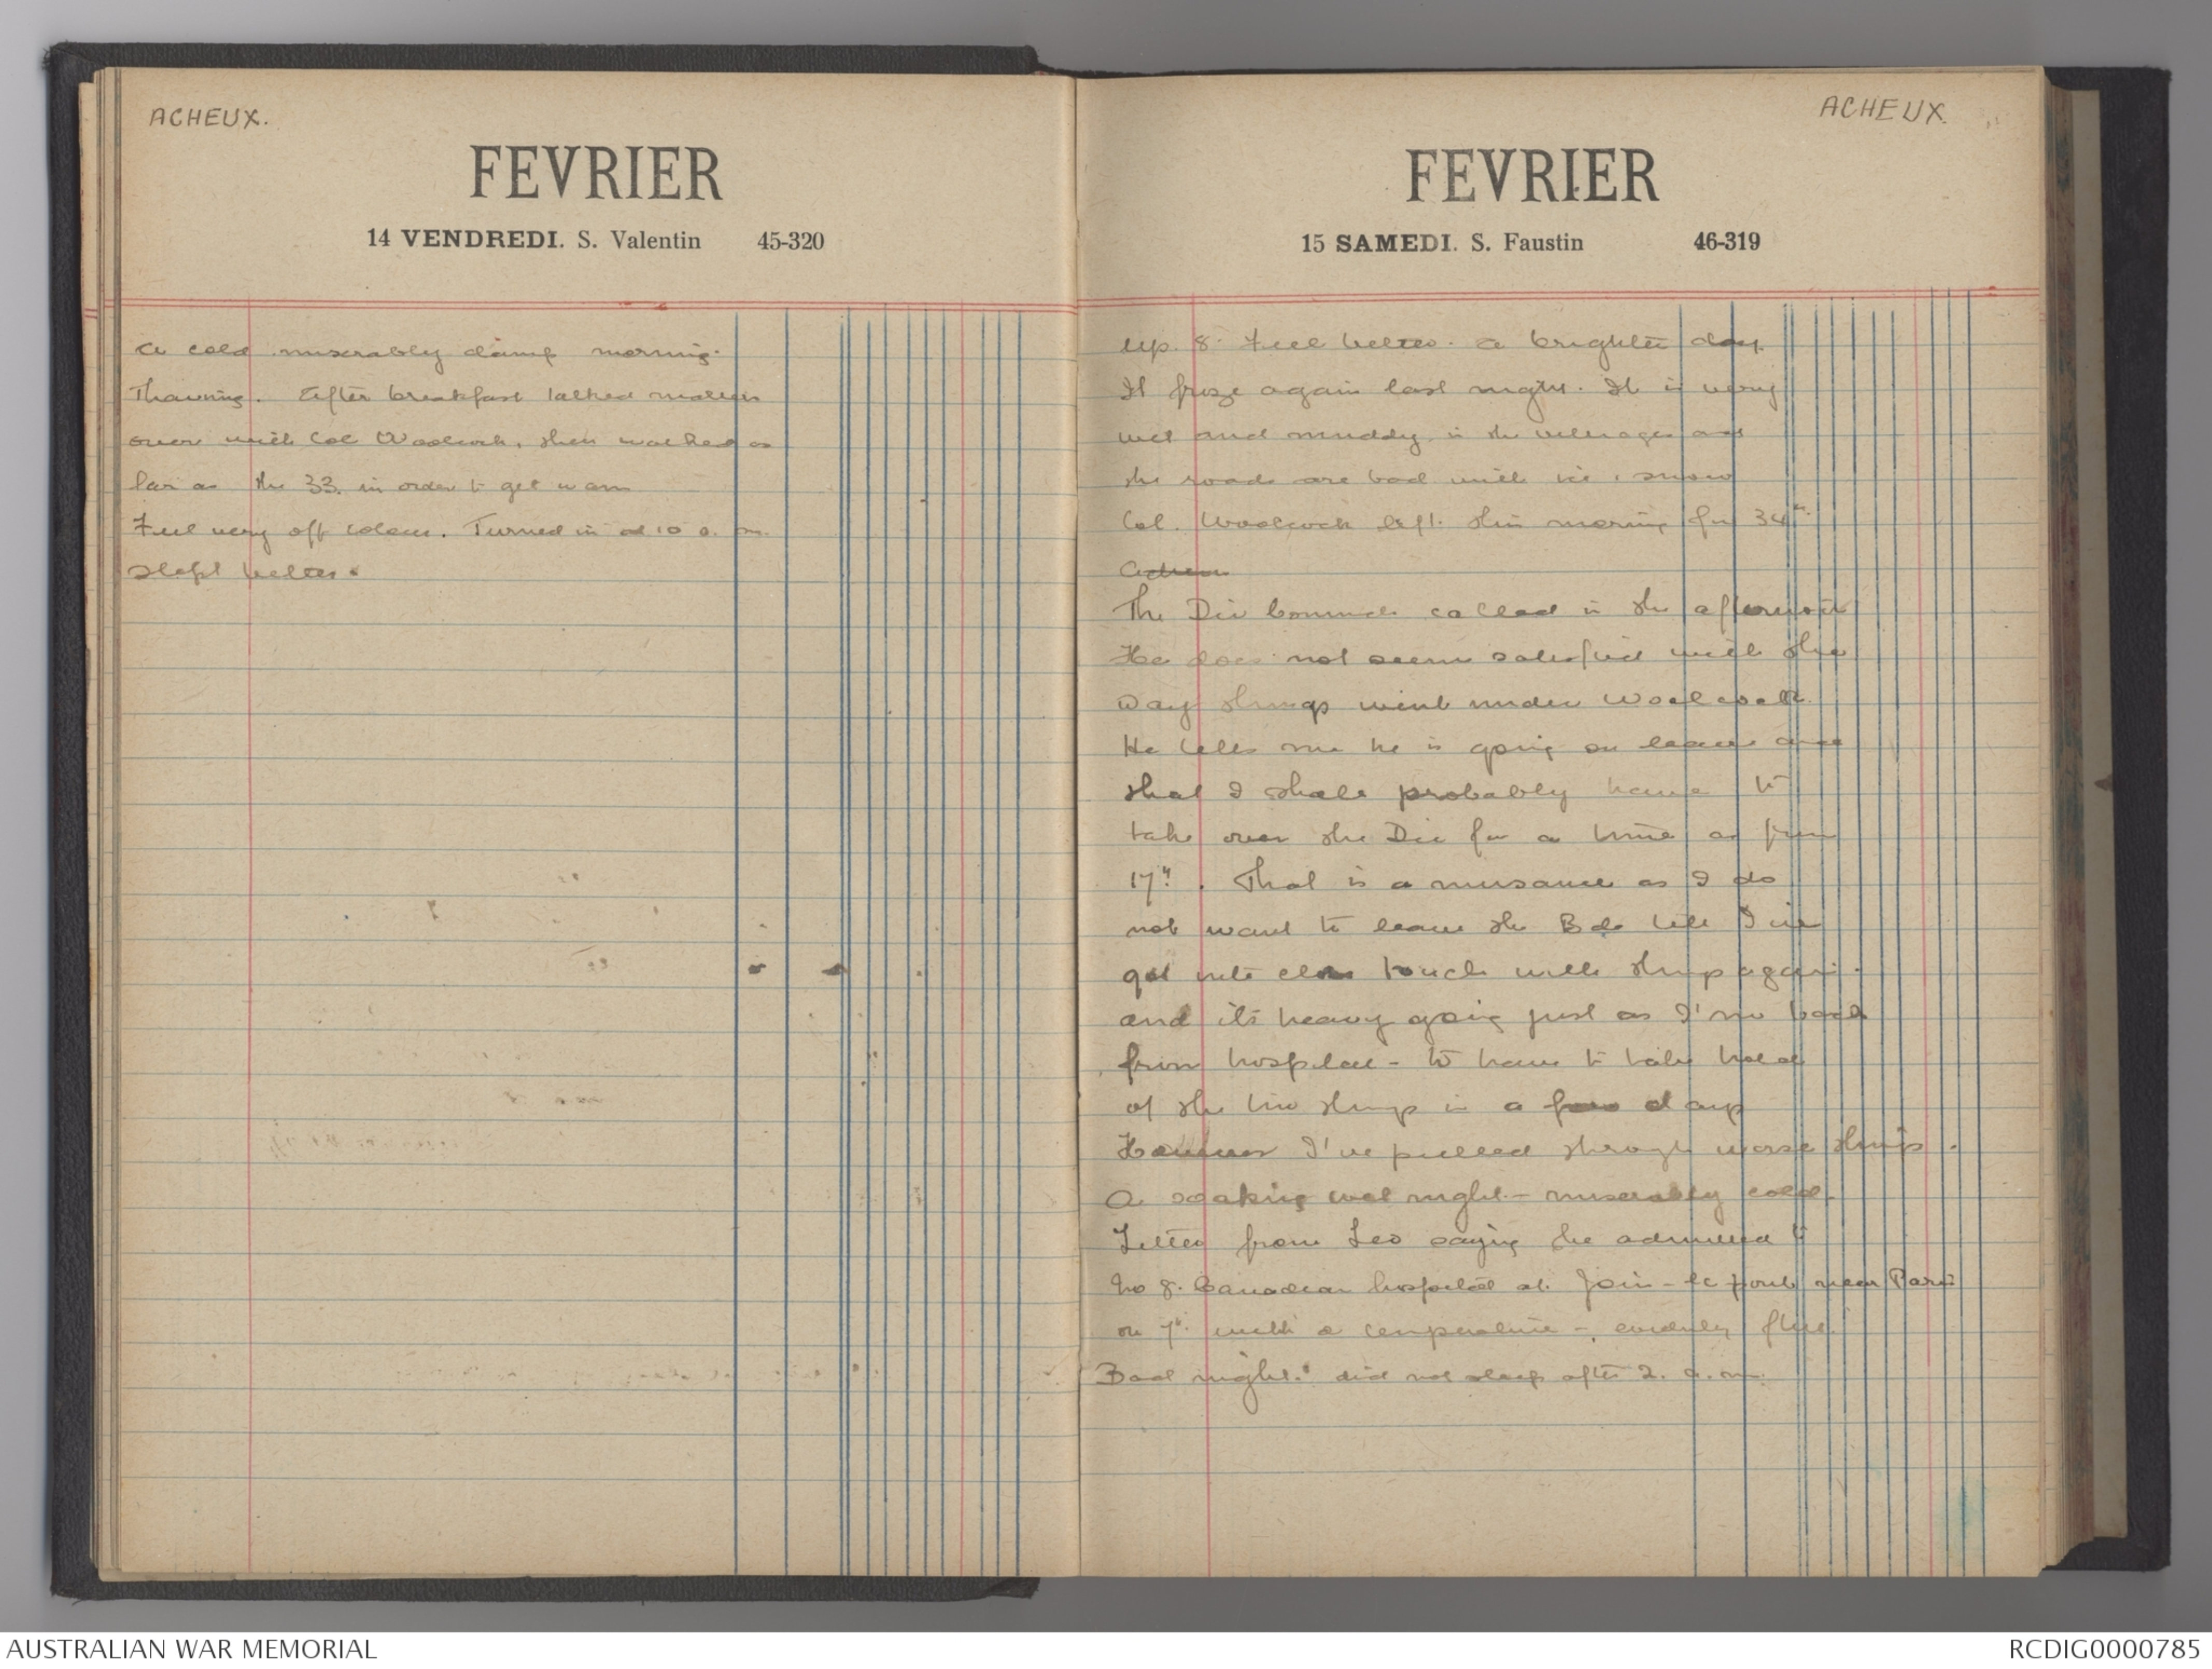 ACHEUX.
FEVRIER
14 VENDREDI. S. Valentin 45-320
A cold miserably damp morning.
Thawing. After breakfast talked matters
over with Col Woolcock, then walked as
far as the 33. in order to get warm
Feel very off colour. Turned in at 10 p. m.
slept better.
ACHEUX
FEVRIER
15 SAMEDI. S. Faustin 46-319
Up. 8. Feel better. A brighter day.
It froze again last night. It is very
wet and muddy in the villages and
the roads are bad with ice & snow
Col. Woolcock left this morning for 34th.
The Div Commdr called in the afternoon
He does not seem satisfied with the
way things went under Woolcock.
He tells me he is going on leave and
that I shall probably have to
take over the Div for a time as from
17th. That is a nuisance as I do
not want to leave the Bde till I've
got into close touch with things again.
and its heavy going just as I'm back
from hospital - to have to take hold
of the two things in a few days
However I've pulled through worse things.
A soaking wet night - miserably cold.
Letter from Leo saying he admitted to
No 8. Canadian hospital at Join-le pont near Paris
on 7th. with a temperature - evidently flu.
Bad night. did not sleep after 2. a.m.
AUSTRALIAN WAR MEMORIAL
RCDIG0000785